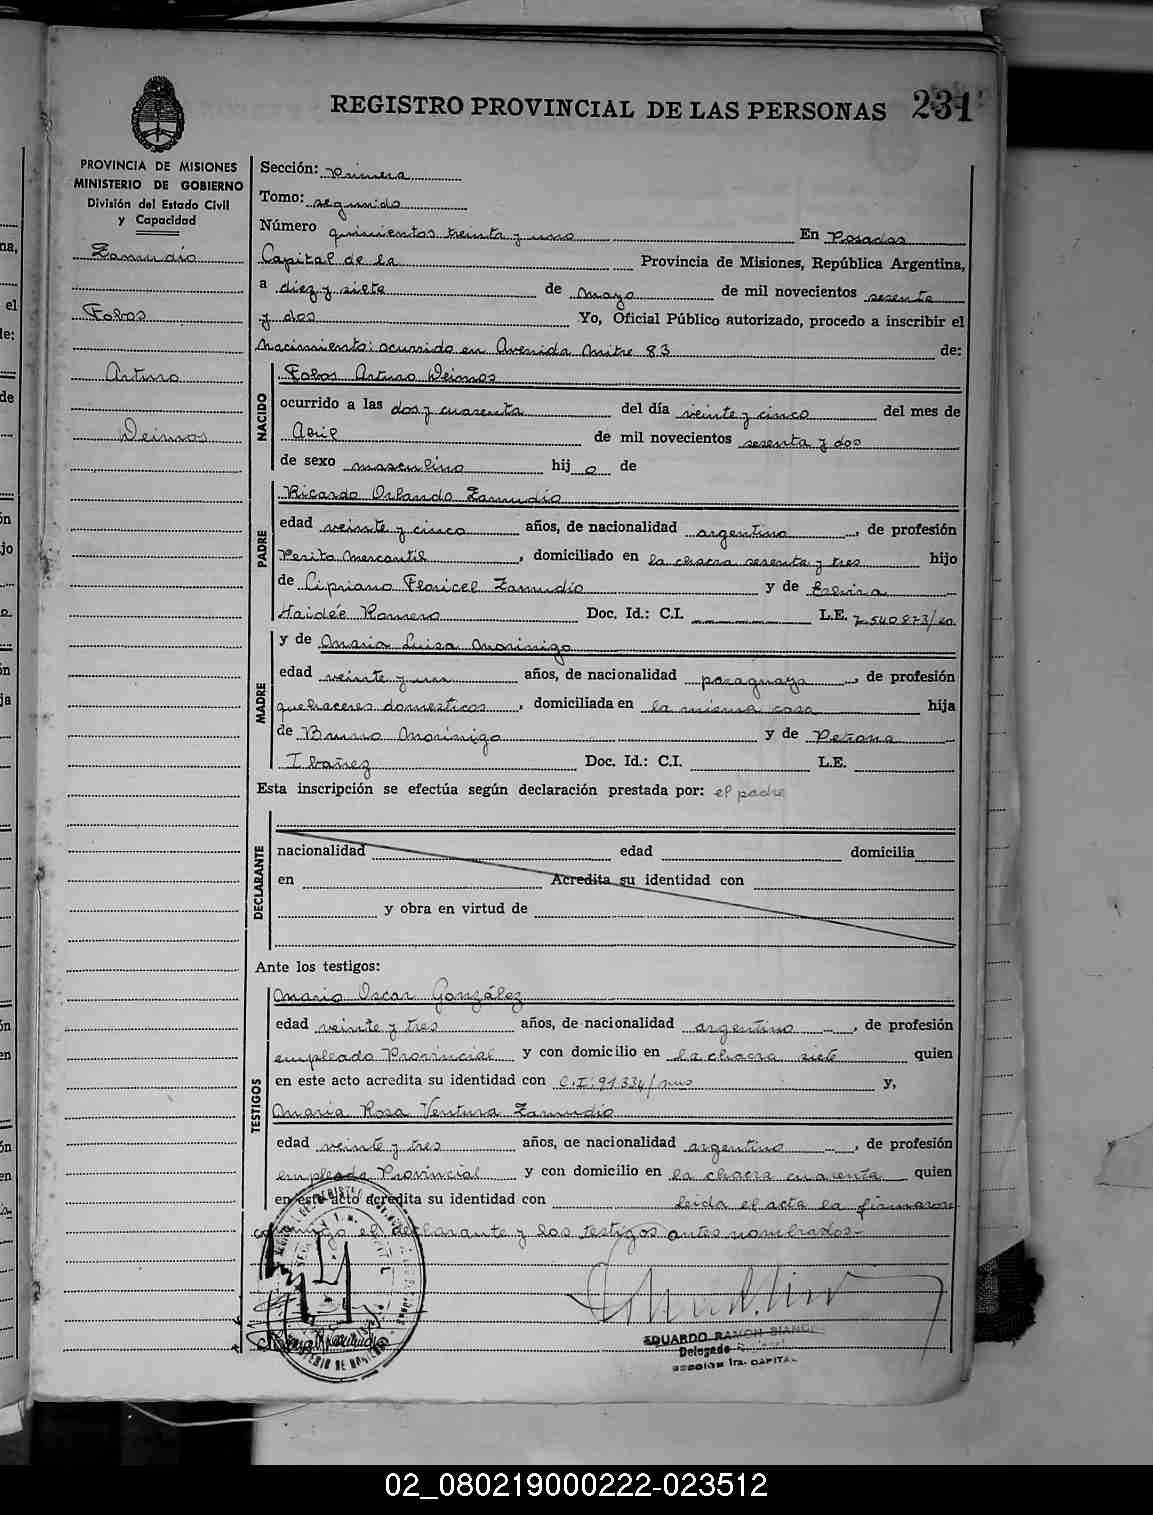 REGISTRO PROVINCIAL DE LAS PERSONAS 231
PROVINCIA DE MISIONES
MINISTERIO DE GOBIERNO
División del Estado Civil
y Capacidad
Zamudio
Fobos
Arturo
Deimos
Sección: Primera
Tomo: segundo
Número quinientos treinta y uno En Posadas
Capital de la Provincia de Misiones, República Argentina,
a diez y siete de mayo de mil novecientos sesenta
y dos Yo, Oficial Público autorizado, procedo a inscribir el
Nacimiento: ocurrido en Avenida Mitre 83 de:
NACIDO
Fobos Arturo Deimos
ocurrido a las dos y cuarenta del día veinte y cinco del mes de
Abril de mil novecientos sesenta y dos
de sexo masculino hijo de
PADRE
Ricardo Orlando Zamudio
edad veinte y cinco años, de nacionalidad argentino, de profesión
Perito Mercantil, domiciliado en la chacra sesenta y tres hijo
de Cipriano Floricel Zamudio y de Elvira
Haidée Romero Doc. Id.: C.I. L.E. 7.540873/
MADRE
y de Maria Luisa Morinigo
edad veinte y un años, de nacionalidad paraguaya, de profesión
quehaceres domesticos, domiciliada en la misma casa hija
de Bruno Morinigo y de Petrona
Ibañez Doc. Id.: C.I. L.E.
Esta inscripción se efectúa según declaración prestada por: el padre
DECLARANTE
nacionalidad edad domicilia
en Acredita su identidad con
y obra en virtud de
Ante los testigos:
TESTIGOS
Mario Oscar González
edad veinte y tres años, de nacionalidad argentino, de profesión
empleado Provincial y con domicilio en la chacra siete quien
en este acto acredita su identidad con C.I: 91.334/mns y,
Maria Rosa Ventura Zamudio
edad veinte y tres años, de nacionalidad argentino, de profesión
empleada Provincial y con domicilio en la chacra cuarenta quien
en este acto acredita su identidad con leida el acta la firmaron
conmigo el declarante y los testigos antes nombrados-
EDUARDO RAMON BIANCHI
Delegado
SECCION 1ra. CAPITAL
02_080219000222-023512